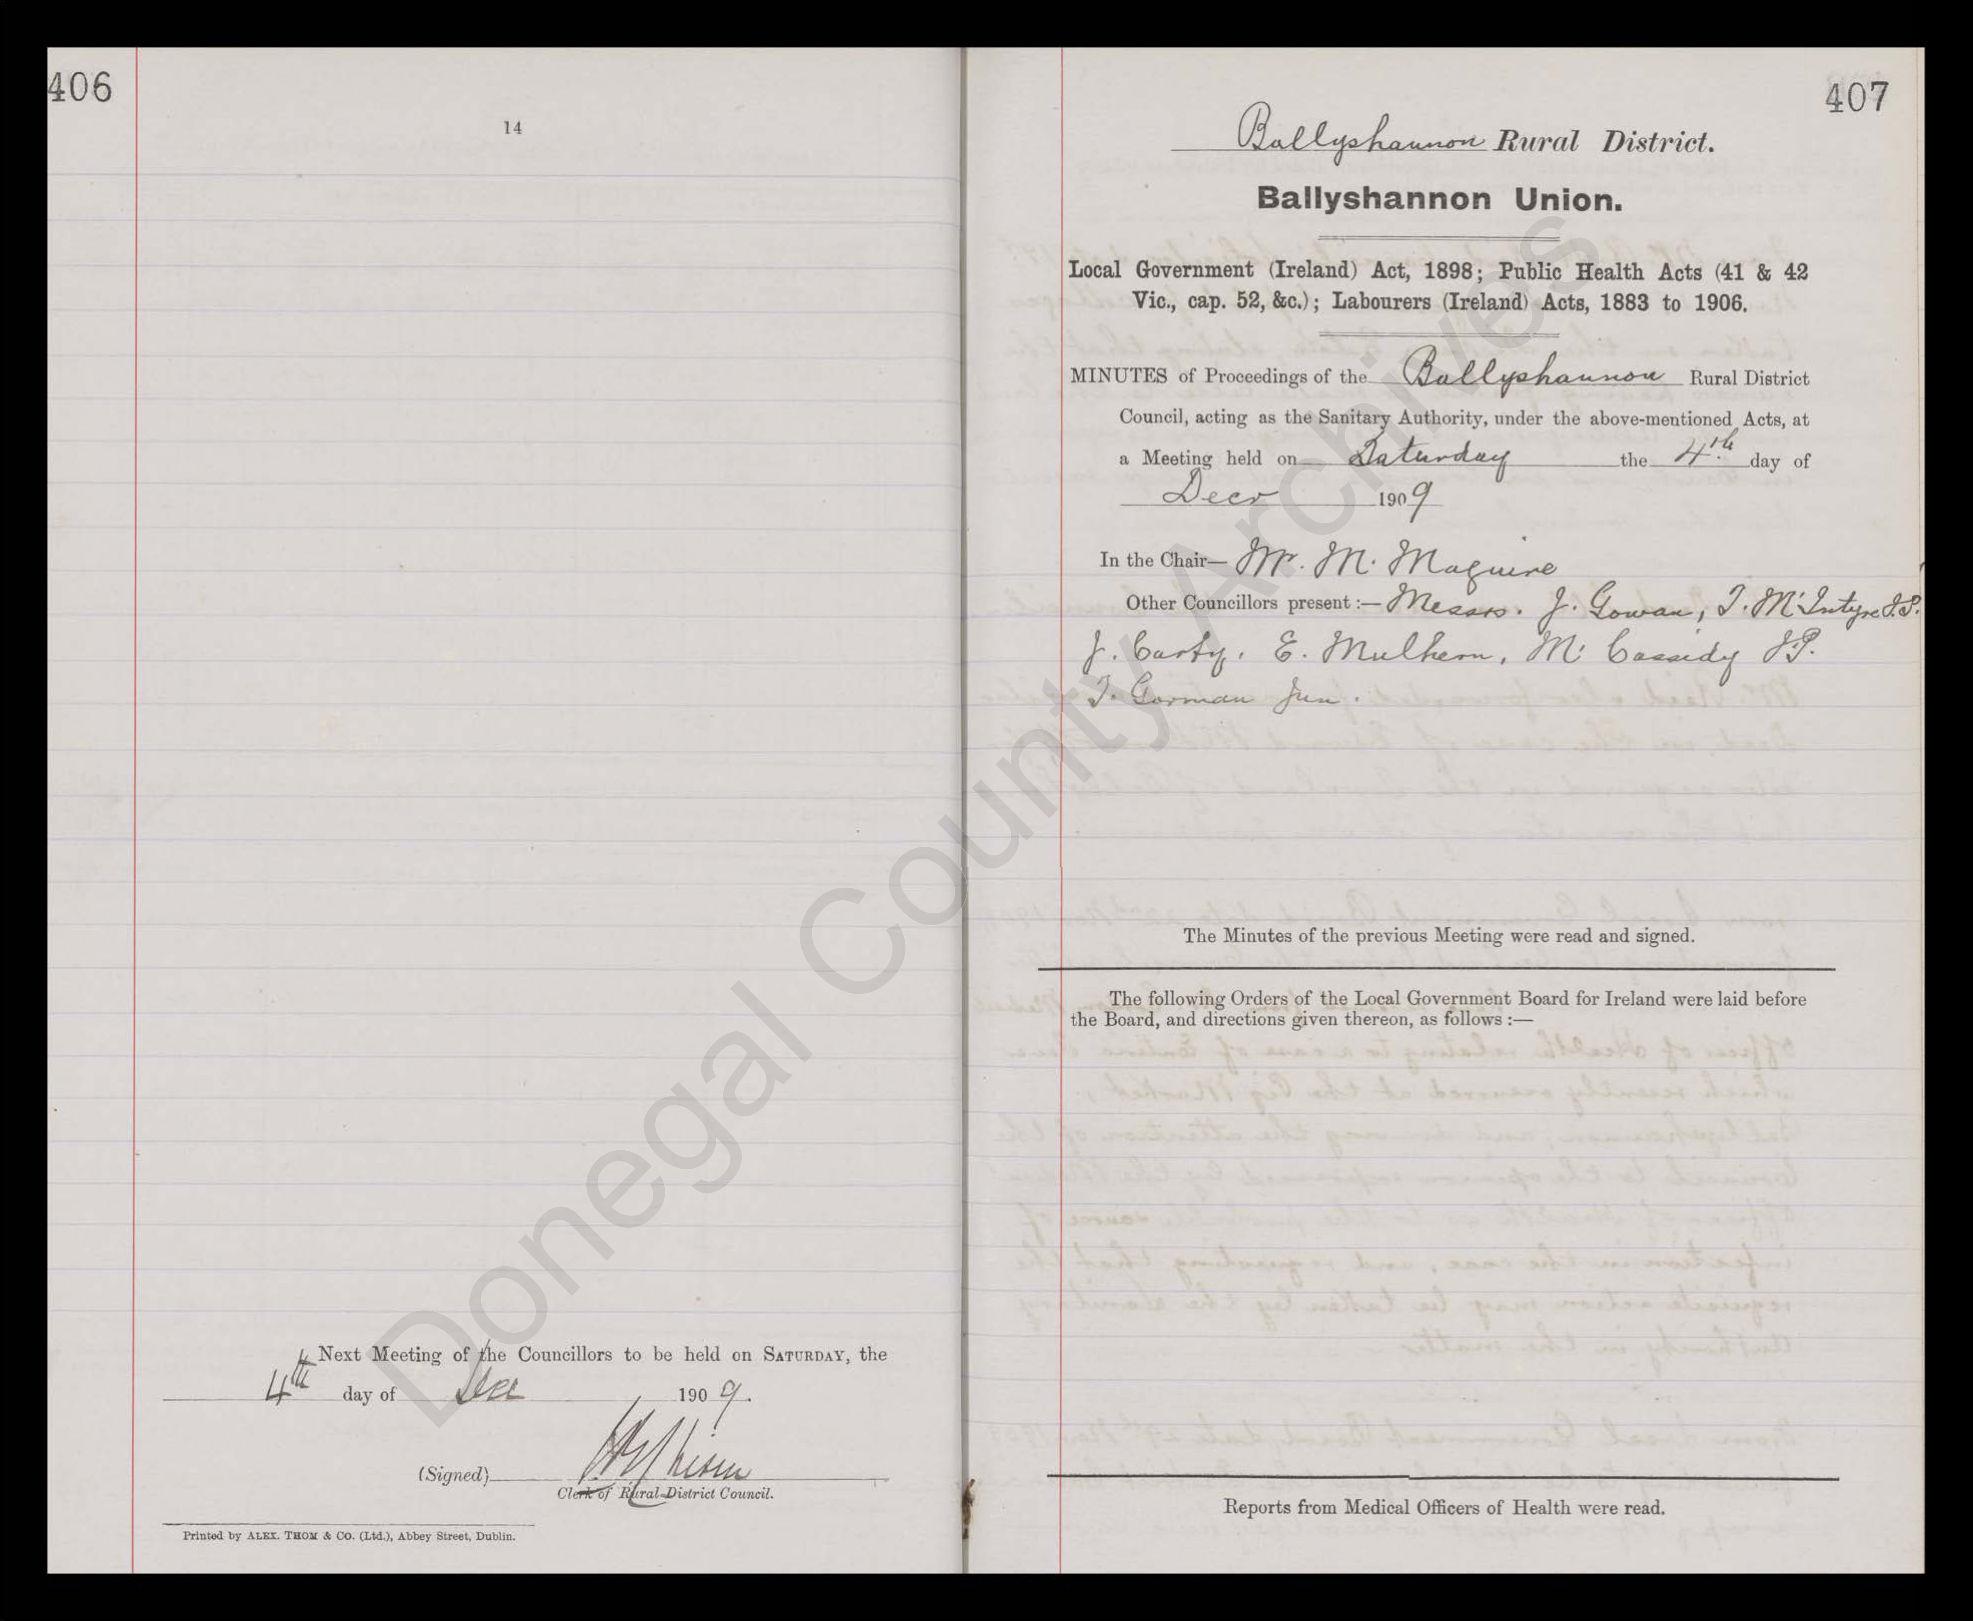 406
14
Next Meeting of the Councillors to be held on SATURDAY, the
4th day of Dec 1909.
(Signed)
Clerk of Rural District Council.
Printed by ALEX. THOM & CO. (Ltd.), Abbey Street, Dublin.
407
Ballyshannon Rural District.
Ballyshannon Union.
Local Government (Ireland) Act, 1898; Public Health Acts (41 & 42
Vic., cap. 52, &c.); Labourers (Ireland) Acts, 1883 to 1906.
MINUTES of Proceedings of the Ballyshannon Rural District
Council, acting as the Sanitary Authority, under the above-mentioned Acts, at
a Meeting held on Saturday the 4th day of
Decr 1909
In the Chair— Mr. M. Maguire
Other Councillors present :— Messrs. J. Gowan, T. McIntyre J.P.
J. Carty, E. Mulhern, M. Cassidy J.P.
T. Gorman Jun.
The Minutes of the previous Meeting were read and signed.
The following Orders of the Local Government Board for Ireland were laid before
the Board, and directions given thereon, as follows :—
Reports from Medical Officers of Health were read.
Donegal County Archives